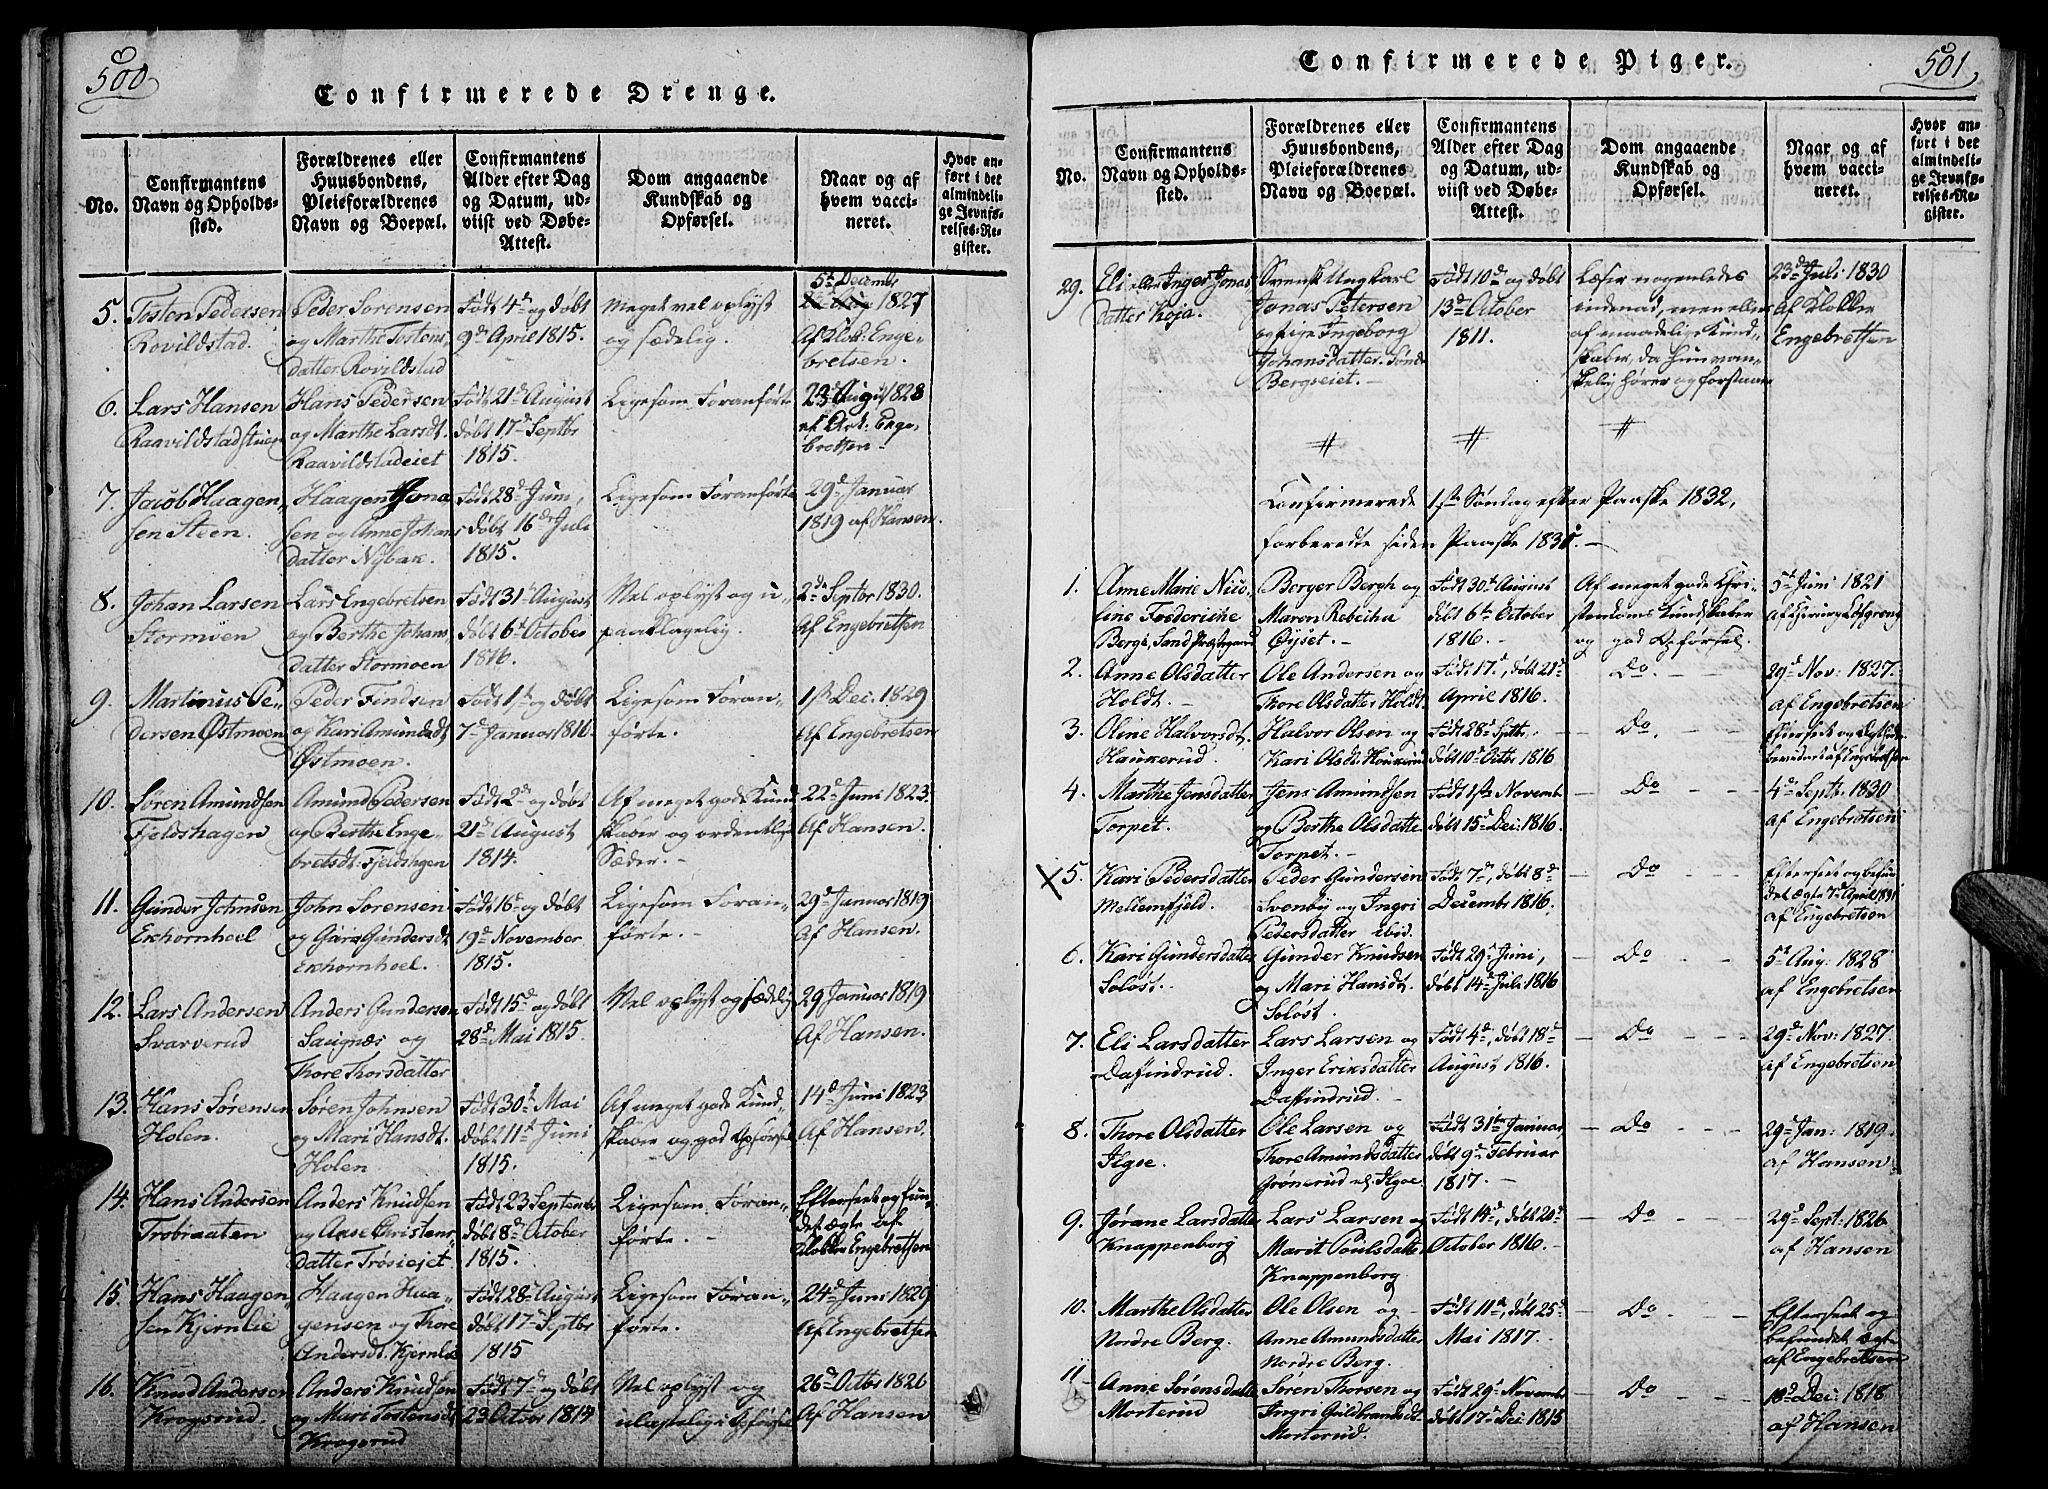 500
Confirmerede Drenge.
No.
Confirmantens
Navn og Opholds-
sted.
Forældrenes eller
Huusbondens,
Pleieforældrenes
Navn og Boepæl.
Confirmantens
Alder efter Dag
og Datum, ud-
viist ved Døbe-
Attest.
Dom angaaende
Kundskab og
Opførsel.
Naar og af
hvem vacci-
neret.
Hvor an-
ført i det
almindeli-
ge Jevnfø-
relses-Re-
gister.
5.
Tosten Pedersen
Rovildstad.
Peder Sørensen
og Marthe Tostens
datter Rovildstad
Født 4de og døbt
9de April 1815.
Meget vel oplyst
og sædelig.
5te Decembr
1827
Af Klok: Enge-
bretsen.
6.
Lars Hansen
Raavildstadstuen
Hans Pedersen
og Marthe Larsdt.
Raavildstadeiet
Født 21de August
døbt 17de Septbr
1815.
Ligesom Foranførte
23de August 1828
Enge-
bretsen.
7.
Jacob Haagen-
sen Steen.
Haagen Jona
sen og Anne Johans
datter Nybak.
Født 28de Juni,
døbt 16de Juli
1815.
Ligesom Foranførte
29de Januar
1819 af Hansen.
8.
Johan Larsen
Stormoen
Lars Engebretsen
og Berthe Johans
datter Stormoen
Født 31te August
døbt 6te October
1816.
Vel oplyst og u-
paaklagelig.
2de Septbr 1830.
Af Engebretsen
9.
Martinus Pe-
dersen Østmoen
Peder Findsen
og Kari Amundsdt
Østmoen.
Født 1ste og døbt
7de Januar 1816.
Ligesom Foran-
førte.
1ste Dec. 1829
Af Engebretsen
10.
Søren Amundsen
Fjeldshagen
Amund Pedersen
og Berthe Enge-
bretsdt: Fjeldshgen
Født 2de og døbt
21de August
1814.
Af meget gode Kund
skaber og ordentlige
Sæder.
22de Juni 1823.
Af Hansen.
11.
Gunder Johnsen
Ekhornhoel
John Sørensen
og Gundersdt
Ekhornhoel.
Født 16de og døbt
19de November
1815.
Ligesom Foran-
førte.
29de Januar 1819
Af Hansen.
12.
Lars Andersen
Svarverud
Anders Gundersen
Saugnæs og
Thore Thorsdatter
Født 15de og døbt
28de Mai 1815.
Vel oplyst og sædelig
29 Januar 1819
Af Hansen.
13.
Hans Sørensen
Holen.
Søren Johnsen
og Mari Hansdt.
Holen
Født 30te Mai
døbt 11te Juni
1815.
Af meget gode Kund-
skaber og god Opførsel
14de Juni 1823
Af Hansen.
14.
Hans Andersen
Trobraaten
Anders Knudsen
og Anse Christens
datter Trøsiejet
Født 23 September
døbt 8de October
1815.
Ligesom Foran-
førte.
Efterseet og fun-
det ægte af
Klokker Engebretsen
15.
Hans Haagen-
sen Kjernlie
Haagen Haa-
gensen og Thore
Andersdt. Kjernlie
Født 28de August
døbt 17de Septbr
1815
Ligesom Foran-
førte.
24de Juni 1829
Af Engebretsen
16.
Knud Andersen
Krogsrud
Anders Knudsen
og Mari Tostensdt
Krogsrud
Født 7de og døbt
23 Octbr 1814
Vel oplyst og
ulastelig i Opførsel
26de Octbr 1826
Af Hansen
501
Confirmerede Piger.
No.
Confirmantens
Navn og Opholds-
sted.
Forældrenes eller
Huusbondens,
Pleieforældrenes
Navn og Boepæl.
Confirmantens
Alder efter Dag
og Datum, ud-
viist ved Døbe-
Attest.
Dom angaaende
Kundskab og
Opførsel.
Naar og af
hvem vacci-
neret.
Hvor an-
ført i det
almindeli-
ge Jevnfø-
relses-Re-
gister.
29.
Eli eller Inger Jonas
datter Koja.
Svensk Ungkarl
Jonas Petersen
og Pige Ingeborg
Johansdatter. Søndre
Bergseiet.
Født 10de og døbt
13de October
1811.
Læser nogenledes
indenad, men eller
af maadelige Kund-
skaber, da hun van-
skelig hører og forstaaer
23de Juli 1830
Af Klokker
Engebretsen
Confirmerede 1ste Søndag efter Paaske 1832,
forberedte siden Paaske 1831.
1.
Anne Marie Nico-
line Frederiche
Bergh, Sand Præstegaard
Berger Bergh og
Maren Rebecha
Øyset.
Født 30te August
døbt 6te October
1816.
Af meget gode Chri-
stendoms Kundskaber
og god Opførsel.
5te Juni 1821
af Chirurg Løfgreng
2.
Anne Olsdatter
Holdt.
Ole Andersen og
Thore Olsdatter Holdt.
Født 17de, døbt 21de
April 1816.
Do.
29de Nov: 1827.
af Engebretsen
3.
Oline Halvorsdt.
Haukerud.
Halvor Olsen og
Kari Olsdt. Haukerud
Født 28de Septbr.
døbt 10de Octbr 1816
Do.
Efterseet og Ægthed
bevidnet af Engebretsen
4.
Marthe Jensdatter
Torpet.
Jens Amundsen
og Berthe Olsdatter
Torpet.
Født 1ste Novembr
døbt 15de Dec: 1816.
Do
4de Septbr. 1830
af Engebretsen
5.
Kari Pedersdatter
Mellemfjeld.
Peder Gundersen
Svenby og Ingri
Pedersdatter ibid.
Født 7de, døbt 8de
Decembr 1816.
Do
Efterseet og befun
det ægte 7de April 1831
af Engebretsen
6.
Kari Gundersdatter
Soløst.
Gunder Knudsen
og Mari Hansdt.
Soløst.
Født 29de Juni,
døbt 14de Juli 1816
Do
5te Aug: 1828
af Engebretsen
7.
Eli Larsdatter
Dafindrud.
Lars Larsen og
Inger Eriksdatter
Daffindrud.
Født 4de, døbt 18de
August 1816.
Do
29de Nov: 1827.
af Engebretsen
8.
Thore Olsdatter
Ilgse.
Ole Larsen og
Thore Amundsdatter
Grønerud
Født 31te Januar,
døbt 9de Februar
1817.
Do
29de Jan: 1819.
af Hansen
9.
Jørane Larsdatter
Knappenborg
Lars Larsen og
Marit Poulsdatter
Knappenborg
Født 14de, døbt 20de
October 1816.
Do
29de Sept: 1826
af Hansen
10.
Marthe Olsdatter
Nordre Berg.
Ole Olsen og
Anne Amundsdatter
Nordre Berg.
Født 11te, døbt 25de
Mai 1817.
Do
Efterseet og
befundet ægte
af Engebretsen
11
Anne Sørensdatter
Morterud
Søren Thorsen og
Ingri Guldbrandsdt.
Morterud.
Født 29de Novembr
døbt 17de Dec: 1815
Do
10de Dec: 1818
af Hansen